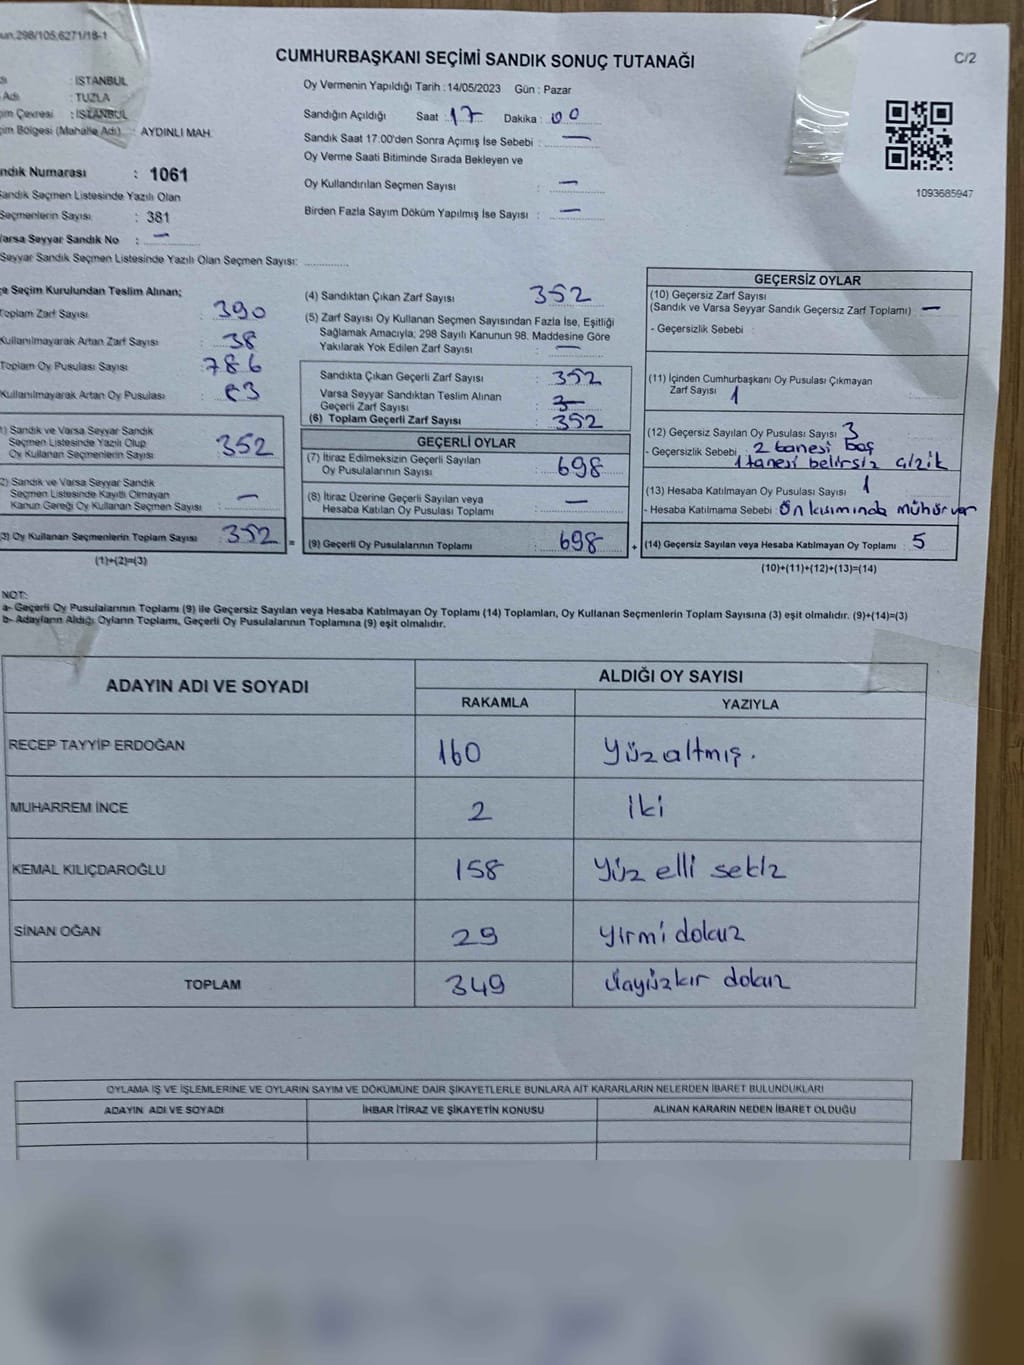 un,298/105,6271/18-1
CUMHURBAŞKANI SEÇİMİ SANDIK SONUÇ TUTANAĞI
C/2
: İSTANBUL
Adı : TUZLA
çim Çevresi : İSTANBUL
çim Bölgesi (Mahalle Adı) : AYDINLI MAH.
Oy Vermenin Yapıldığı Tarih : 14/05/2023 Gün : Pazar
Sandığın Açıldığı Saat : 17 Dakika : 00
Sandık Saat 17.00'den Sonra Açımış İse Sebebi : —
Oy Verme Saati Bitiminde Sırada Bekleyen ve
Oy Kullandırılan Seçmen Sayısı : —
Birden Fazla Sayım Döküm Yapılmış İse Sayısı : —
1093685947
ndık Numarası : 1061
Sandık Seçmen Listesinde Yazılı Olan
Seçmenlerin Sayısı : 381
Varsa Seyyar Sandık No : —
Seyyar Sandık Seçmen Listesinde Yazılı Olan Seçmen Sayısı:
çe Seçim Kurulundan Teslim Alınan;
Toplam Zarf Sayısı : 390
Kullanılmayarak Artan Zarf Sayısı : 38
Toplam Oy Pusulası Sayısı : 786
Kullanılmayarak Artan Oy Pusulası :
1) Sandık ve Varsa Seyyar Sandık
Seçmen Listesinde Yazılı Olup
Oy Kullanan Seçmenlerin Sayısı : 352
2) Sandık ve Varsa Seyyar Sandık
Seçmen Listesinde Kayıtlı Olmayan
Kanun Gereği Oy Kullanan Seçmen Sayısı : —
3) Oy Kullanan Seçmenlerin Toplam Sayısı : 352
(1)+(2)=(3)
=
(4) Sandıktan Çıkan Zarf Sayısı : 352
(5) Zarf Sayısı Oy Kullanan Seçmen Sayısından Fazla İse, Eşitliği
Sağlamak Amacıyla; 298 Sayılı Kanunun 98. Maddesine Göre
Yakılarak Yok Edilen Zarf Sayısı : —
Sandıkta Çıkan Geçerli Zarf Sayısı : 352
Varsa Seyyar Sandıktan Teslim Alınan
Geçerli Zarf Sayısı :
(6) Toplam Geçerli Zarf Sayısı : 352
GEÇERLİ OYLAR
(7) İtiraz Edilmeksizin Geçerli Sayılan
Oy Pusulalarının Sayısı : 698
(8) İtiraz Üzerine Geçerli Sayılan veya
Hesaba Katılan Oy Pusulası Toplamı : —
(9) Geçerli Oy Pusulalarının Toplamı : 698
+
GEÇERSİZ OYLAR
(10) Geçersiz Zarf Sayısı
(Sandık ve Varsa Seyyar Sandık Geçersiz Zarf Toplamı) —
- Geçersizlik Sebebi :
(11) İçinden Cumhurbaşkanı Oy Pusulası Çıkmayan
Zarf Sayısı 1
(12) Geçersiz Sayılan Oy Pusulası Sayısı 3
- Geçersizlik Sebebi : 2 tanesi boş
1 tanesi belirsiz çizik
(13) Hesaba Katılmayan Oy Pusulası Sayısı 1
- Hesaba Katılmama Sebebi : Ön kısmında mühür var
(14) Geçersiz Sayılan veya Hesaba Katılmayan Oy Toplamı : 5
(10)+(11)+(12)+(13)=(14)
NOT:
a- Geçerli Oy Pusulalarının Toplamı (9) ile Geçersiz Sayılan veya Hesaba Katılmayan Oy Toplamı (14) Toplamları, Oy Kullanan Seçmenlerin Toplam Sayısına (3) eşit olmalıdır. (9)+(14)=(3)
b- Adayların Aldığı Oyların Toplamı, Geçerli Oy Pusulalarının Toplamına (9) eşit olmalıdır.
ADAYIN ADI VE SOYADI
ALDIĞI OY SAYISI
RAKAMLA YAZIYLA
RECEP TAYYİP ERDOĞAN 160 Yüzaltmış.
MUHARREM İNCE 2 iki
KEMAL KILIÇDAROĞLU 158 Yüz elli sekiz
SİNAN OĞAN 29 yirmi dokuz
TOPLAM 349 üçyüzkır dokuz
OYLAMA İŞ VE İŞLEMLERİNE VE OYLARIN SAYIM VE DÖKÜMÜNE DAİR ŞİKAYETLERLE BUNLARA AİT KARARLARIN NELERDEN İBARET BULUNDUKLARI
ADAYIN ADI VE SOYADI İHBAR İTİRAZ VE ŞİKAYETİN KONUSU ALINAN KARARIN NEDEN İBARET OLDUĞU